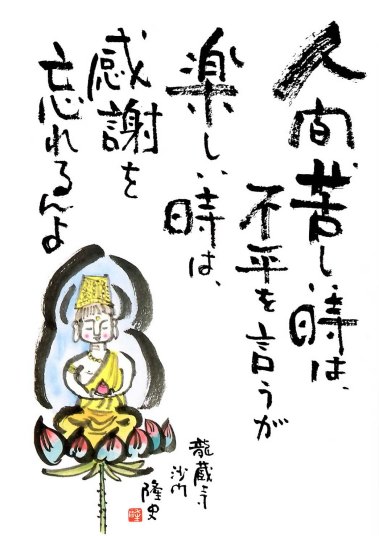 人間、苦しい時は、
不平を言うが
楽しい時は、
感謝を
忘れるんよ
龍蔵寺
沙門
隆史